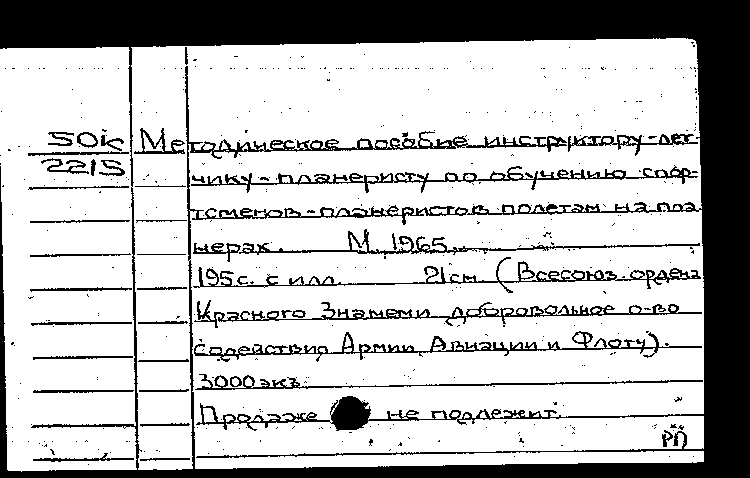 50к Методическое пособие инструктору-лет-
2215 чику-планеристу по обучению спор-
тсменов-планеристов полетам на пла
нерах. М. 1965.
195с. с илл. 21см (Всесоюз. ордена
Красного Знамени добровольное о-во
содействия Армии, Авиации и Флоту).
3000 экз.
Продаже не подлежит.
РП